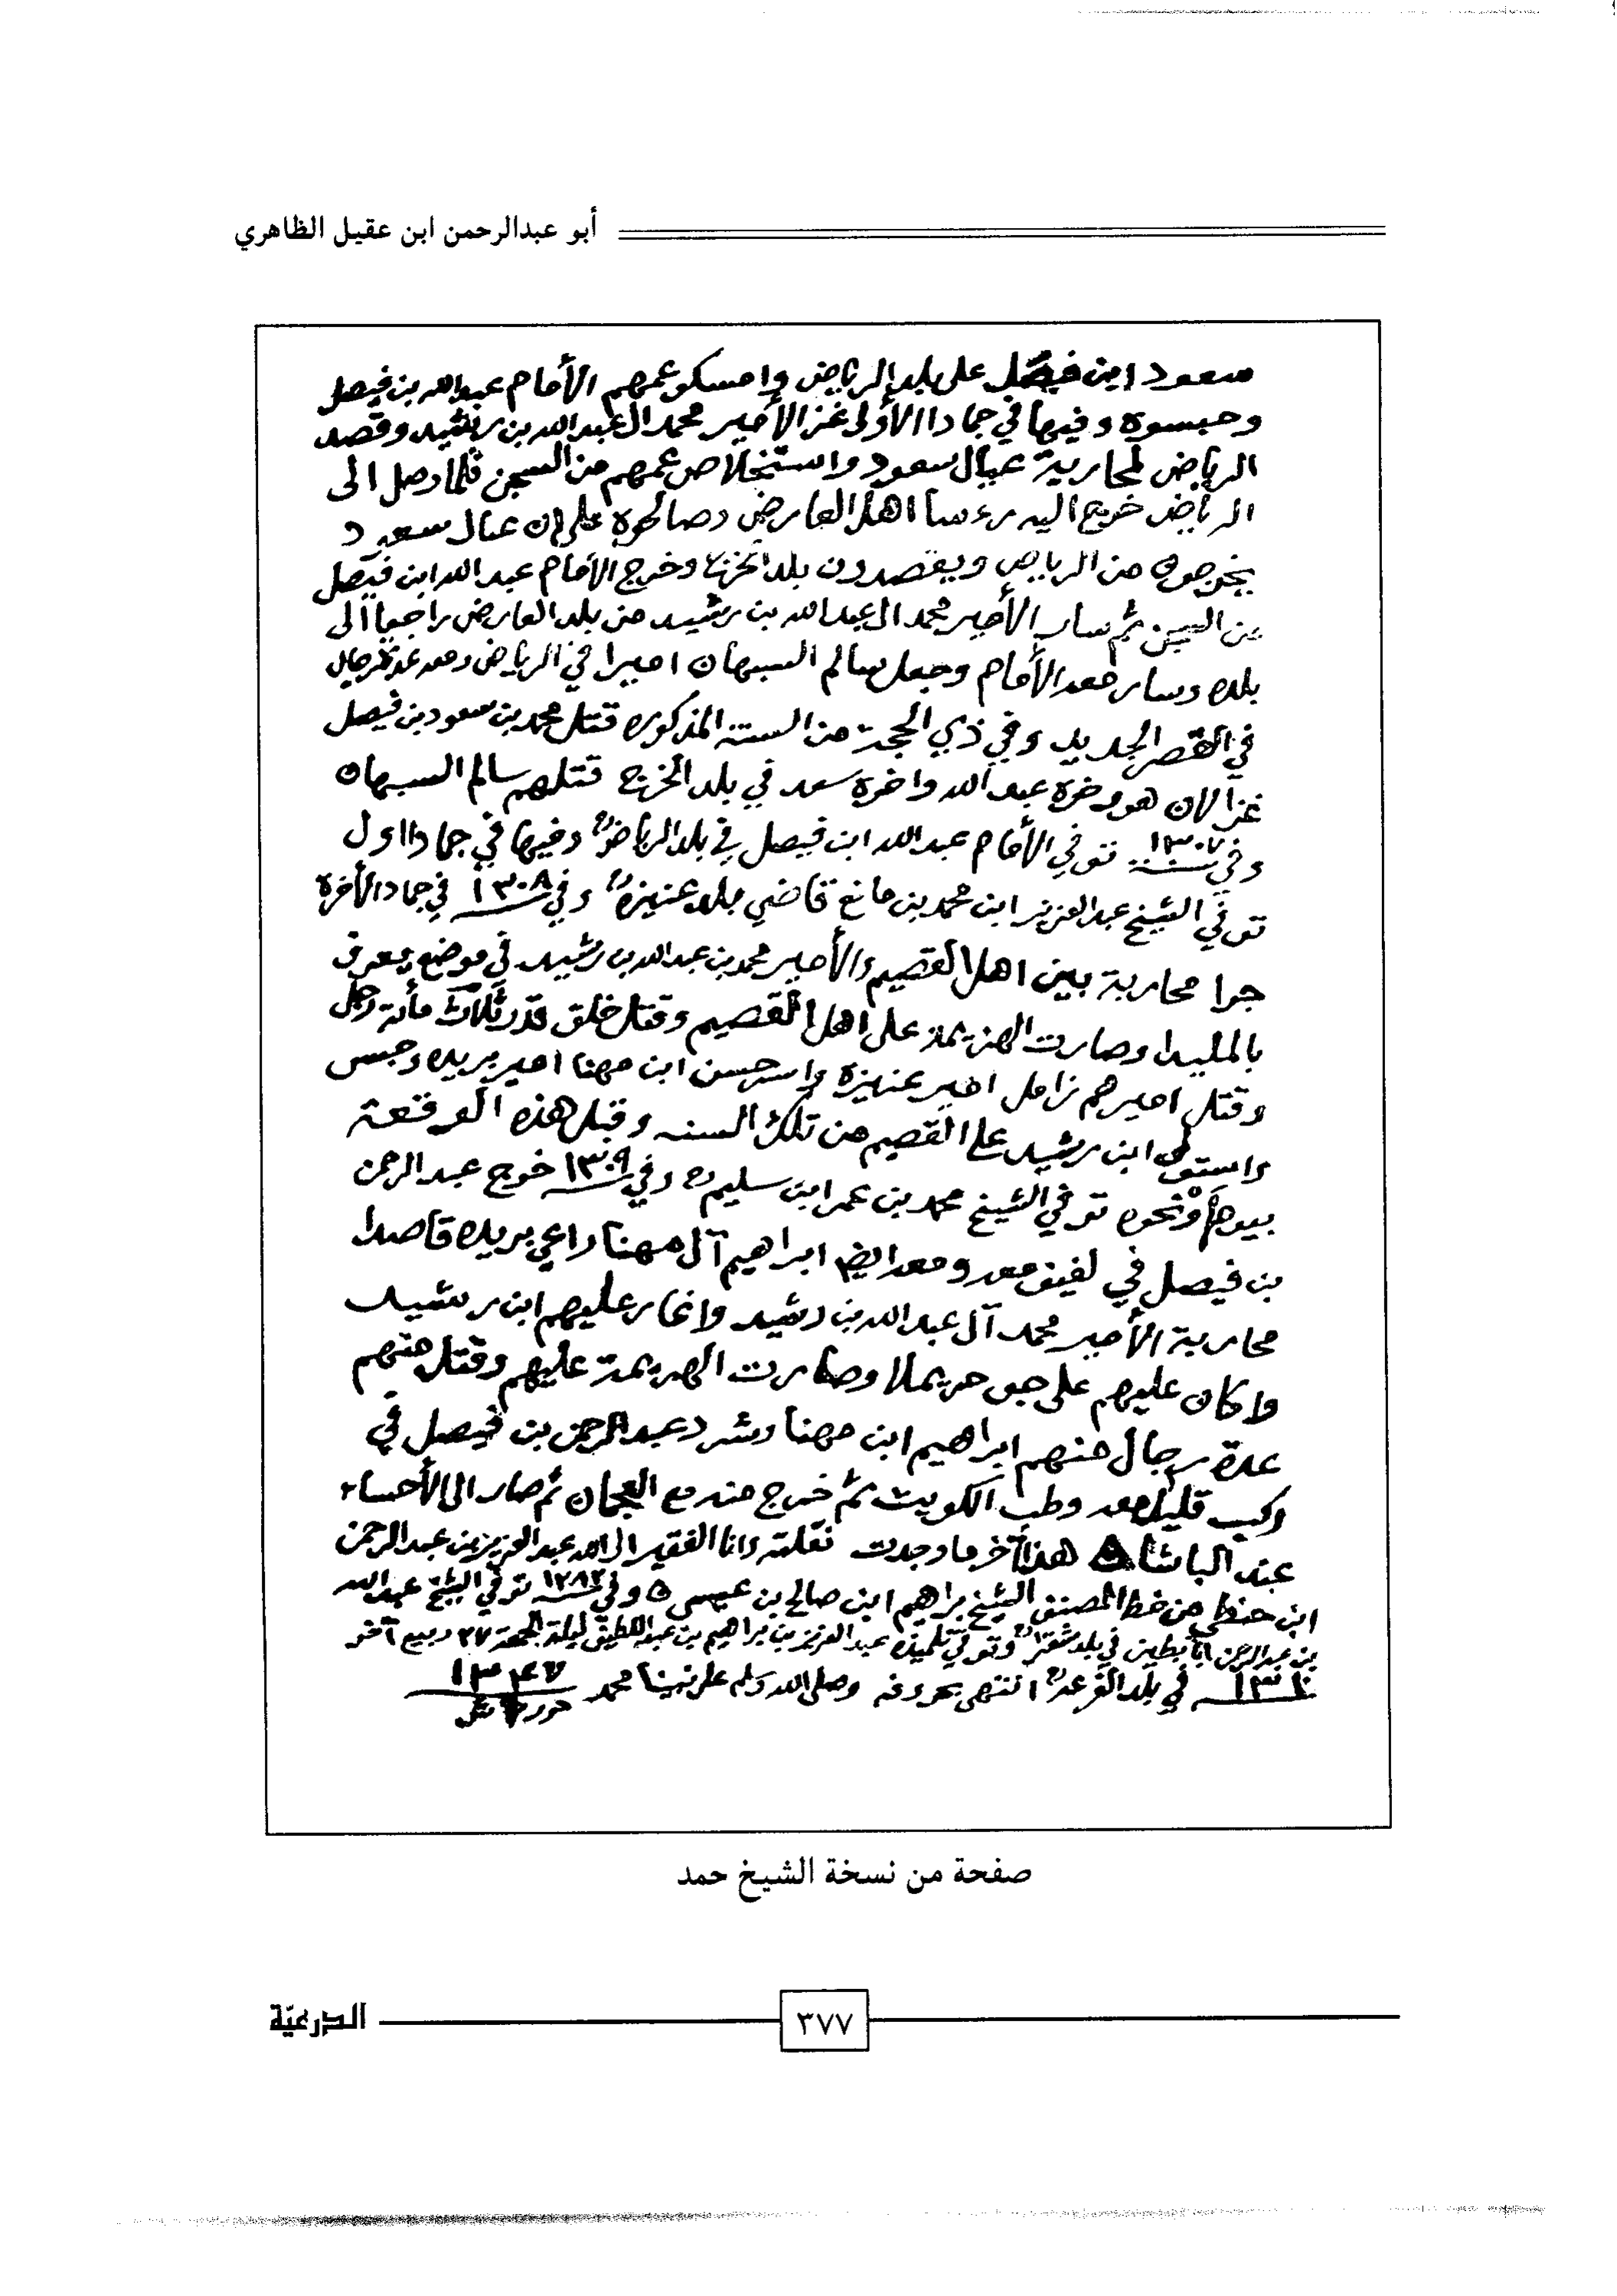 أبو عبدالرحمن ابن عقيل الظاهري
سعود ابن فيصل على بلد الرياض وامسكو عمهم الأمام عبدالله بن فيصل
وحبسوه وفيها في جمادا الأولى غزا الأمير محمد ال عبدالله بن رشيد وقصد
الرياض لمحاربة عيال سعود واستخلاص عمهم من السجن فلما وصل الى
الرياض خرج اليه رءوسا اهل العارض وصالحوه على ان عيال سعود
يخرجون من الرياض ويقصدون بلد الخرج وخرج الأمام عبدالله ابن فيصل
من السجن ثم سار الأمير محمد ال عبدالله بن رشيد من بلد العارض راجعا الى
بلده وسار معه الأمام وجعل سالم السبهان اميرا في الرياض ومعه عدة رجال
في القصر الجديد وفي ذي الحجة من السنة المذكوره قتل محمد بن سعود بن فيصل
غزالان هو وخوه عبدالله واخوه سعد في بلد الخرج قتلهم سالم السبهان
وفي سنة ١٣٠٧ توفي الأمام عبدالله ابن فيصل في بلد الرياض وفيها في جمادا اول
توفي الشيخ عبدالعزيز ابن محمد بن مانع قاضي بلد عنيزه وفي ١٣٠٨ في جماد الأخره
جرا محاربة بين اهل القصيم والأمير محمد بن عبدالله بن رشيد في موضع يعرف
بالمليدا وصارت الهزيمة على اهل القصيم وقتل خلق قدر ثلاث مأته رجل
وقتل اميرهم زامل امير عنيزة واسر حسن ابن مهنا امير بريده وحبس
واستولى ابن رشيد على القصيم من تلك السنه وقبل هذه الوقعة
بيوم ونحوه توفي الشيخ محمد بن عمر ابن سليم وفي ١٣٠٩ خرج عبدالرحمن
بن فيصل في لفيق معه ومعه ايض ابراهيم آل مهنا راعي بريده قاصدا
محاربة الأمير محمد آل عبدالله بن رشيد واغار عليهم ابن رشيد
واكان عليهم على جو حريملا وصارت الهزيمة عليهم وقتل منهم
عدة رجال منهم ابراهيم ابن مهنا وشرد عبدالرحمن بن فيصل في
ركب قليل معه وطب الكويت ثم خرج منه مع العجمان ثم صار الى الأحساء
عند الباشا ه هذا آخر ما وجدت نقلته وانا الفقير الى الله عبدالعزيز بن عبدالرحمن
ابن حنطي من خط المصنف الشيخ براهيم ابن صالح بن عيسى ه وفي ١٢٨٢ توفي الشيخ عبدالله
بن عبدالرحمن ابابطين في بلد شقرا وتوفي تلميذه عبدالعزيز بن براهيم بن عبداللطيف ليلة الجمعة ٢٧ ربيع آخر
في بلد القرعه انتهى بحروفه وصلى الله وسلم على نبينا محمد ١٣٤٧
صفحة من نسخة الشيخ حمد
٣٧٧
الدرعيّة